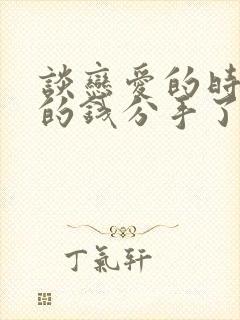 談戀愛的時
的錢分手了
丁氣軒